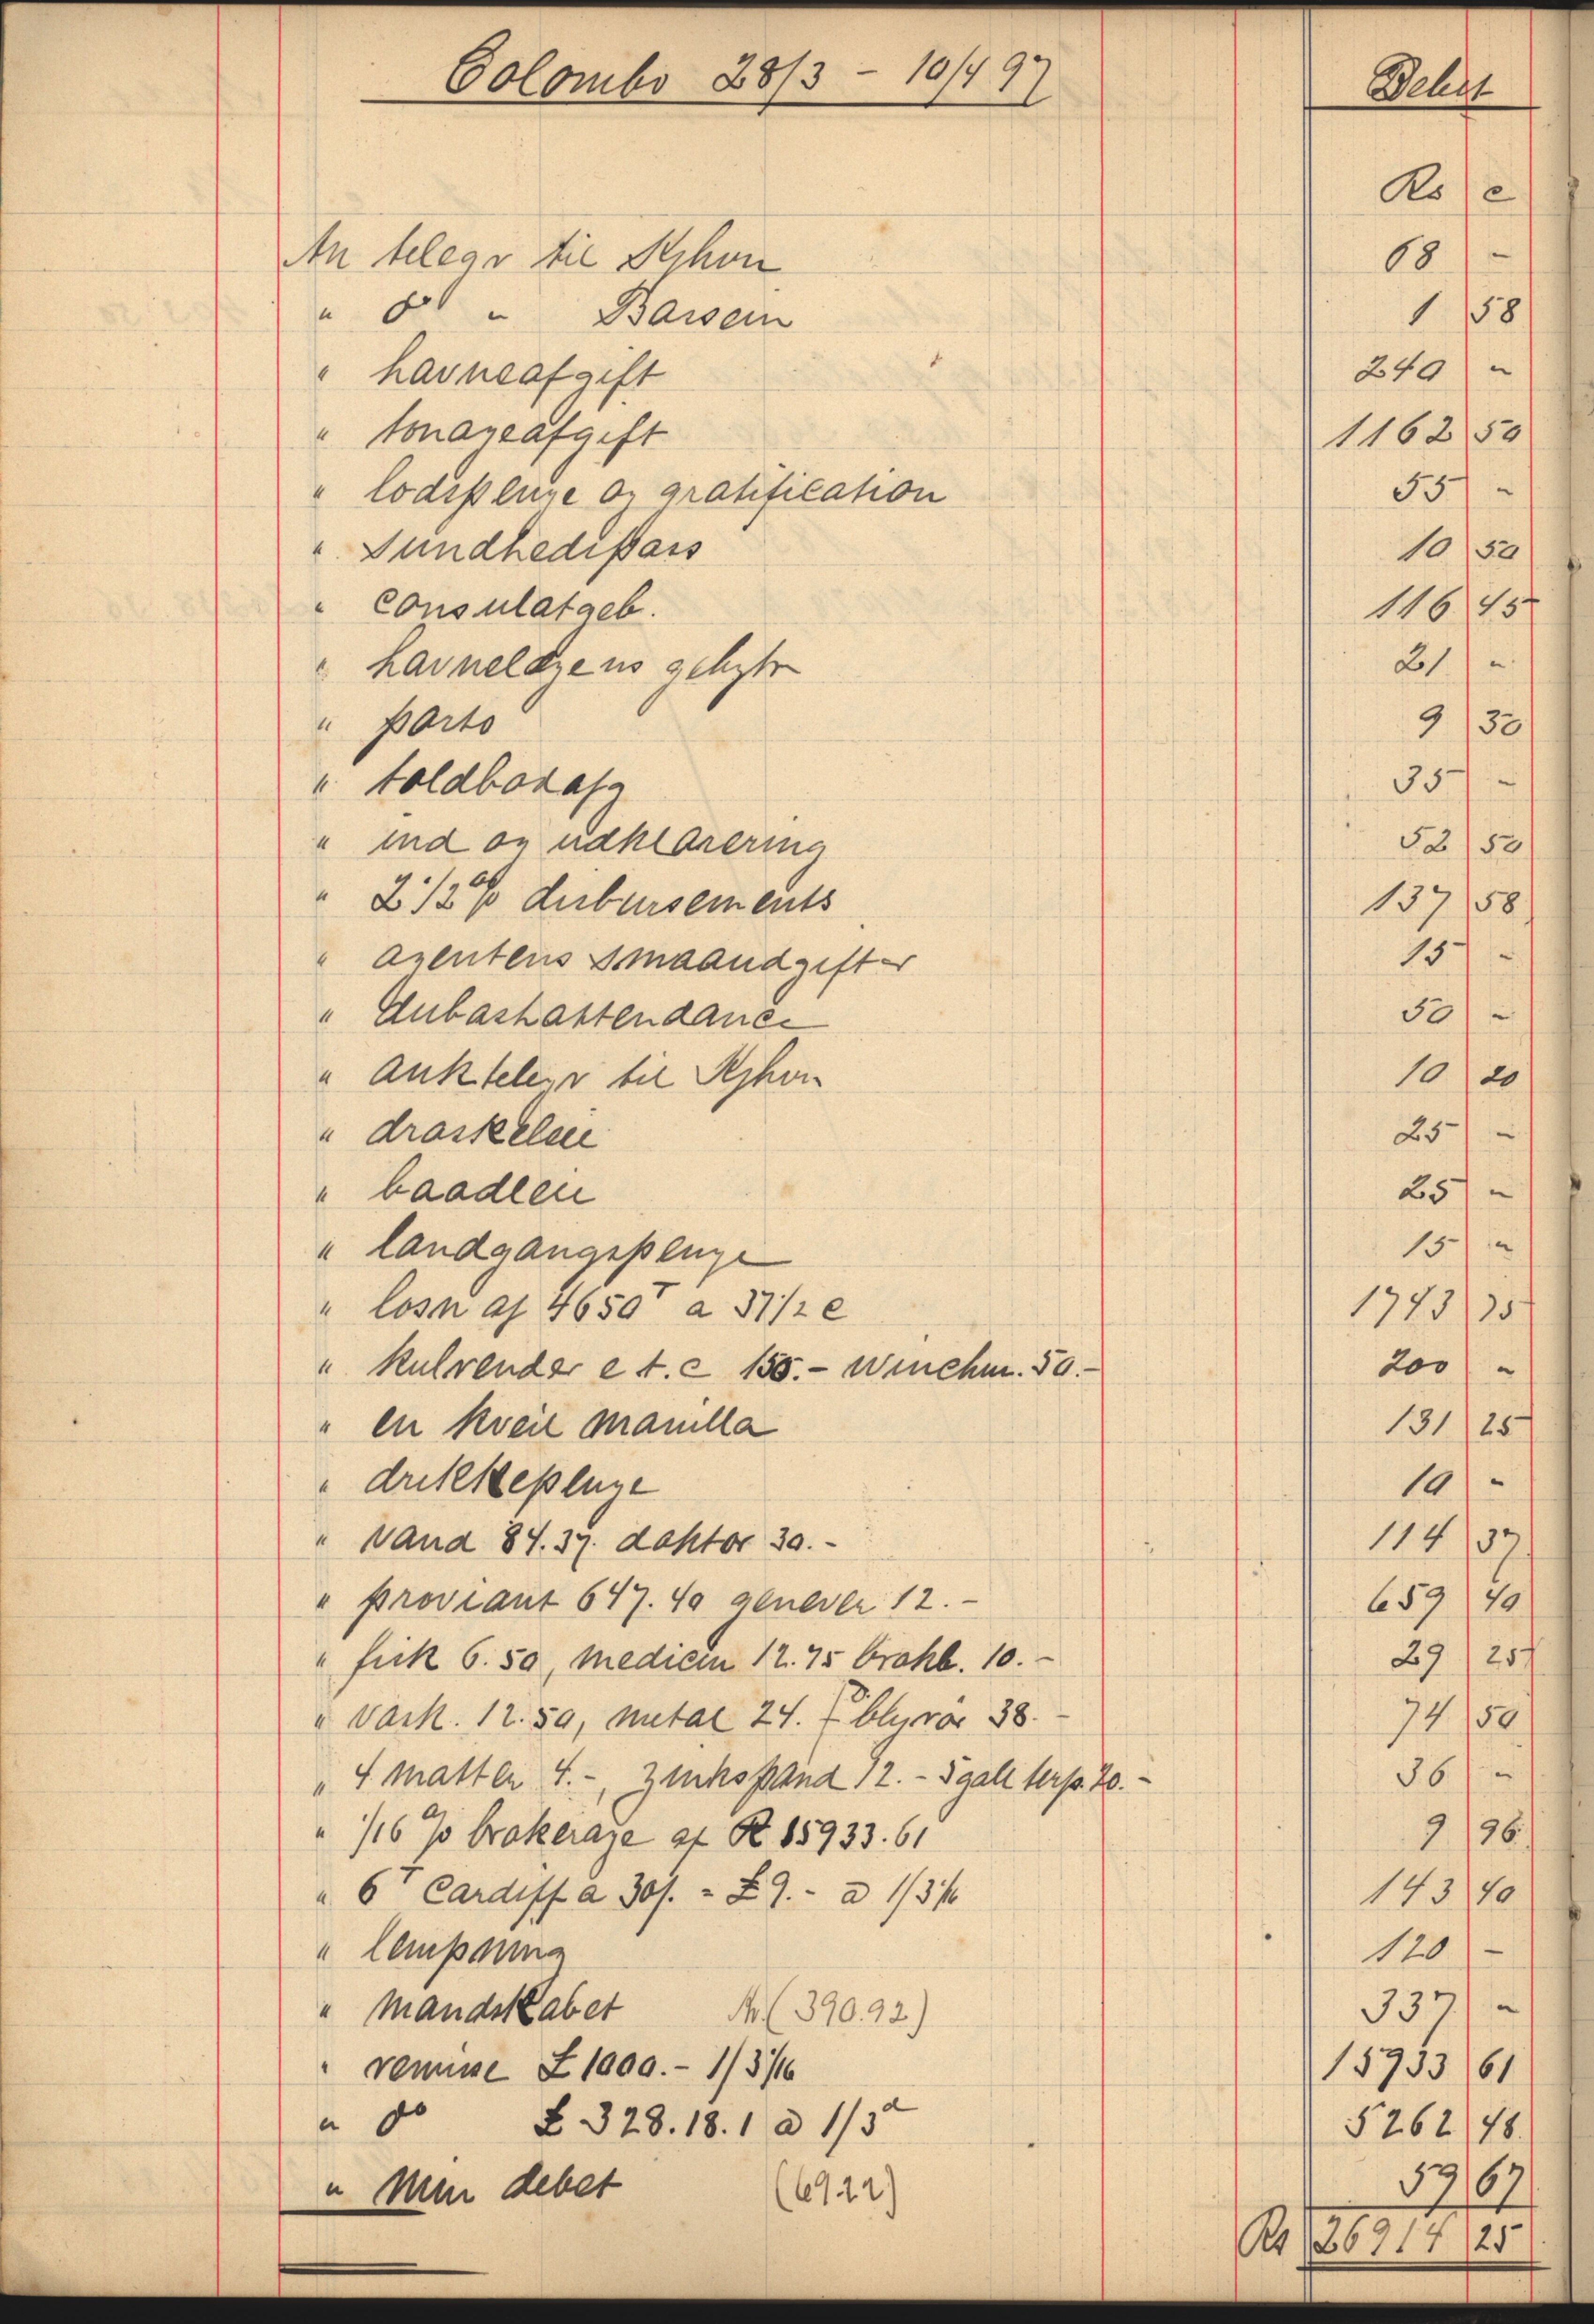 Colombo 28/3 - 10/4 97 Debet
Rs c
An telegr til Skhvn 68 -
" do " Bassein 1 58
" havneafgift 240 "
" tonageafgift 1162 50
" lodspenge og gratification 55 -
" Sundhedspass 10 50
" consulatgeb. 116 45
" havnelægens gebyr 21 "
" porto 9 30
" toldbodafg 35 -
" ind og udklarering 52 50
" 2 1/2 % disbursements 137 58
" agentens smaaudgifter 15 -
" Dubashattendance 50 -
" anktelegr til Skhvn 10 20
" droskeleie 25 -
" baadleie 25 "
" landgangspenge 15 "
" losn af 4650 T a 37 1/2 c 1743 75
" kulrender e t. c 150.- Winchm. 50.- 200 "
" en kveil manilla 131 25
" drikkepenge 10 -
" vand 84.37. doktor 30.- 114 37
" proviant 647.40 genever 12.- 659 40
" fisk 6.50, medicin 12.75 10.- 29 25
" vask. 12.50, metal 24. blyrør 38.- 74 50
" 4 matter 4.-, zinkspand 12.- 5 gall terp. 20.- 36 "
" 1/16 % brokerage af R 15933.61 9 96
" 6 T Cardiff a 30/. = £ 9.- a 1/3 1/16 143 40
" lempning 120 -
" mandskabet (390.92) 337 "
" remisse £ 1000.- 1/3 1/16 15933 61
" do £ 328.18.1 a 1/3 d 5262 48
" Min debet (6922) 59 67
Rs 26914 25